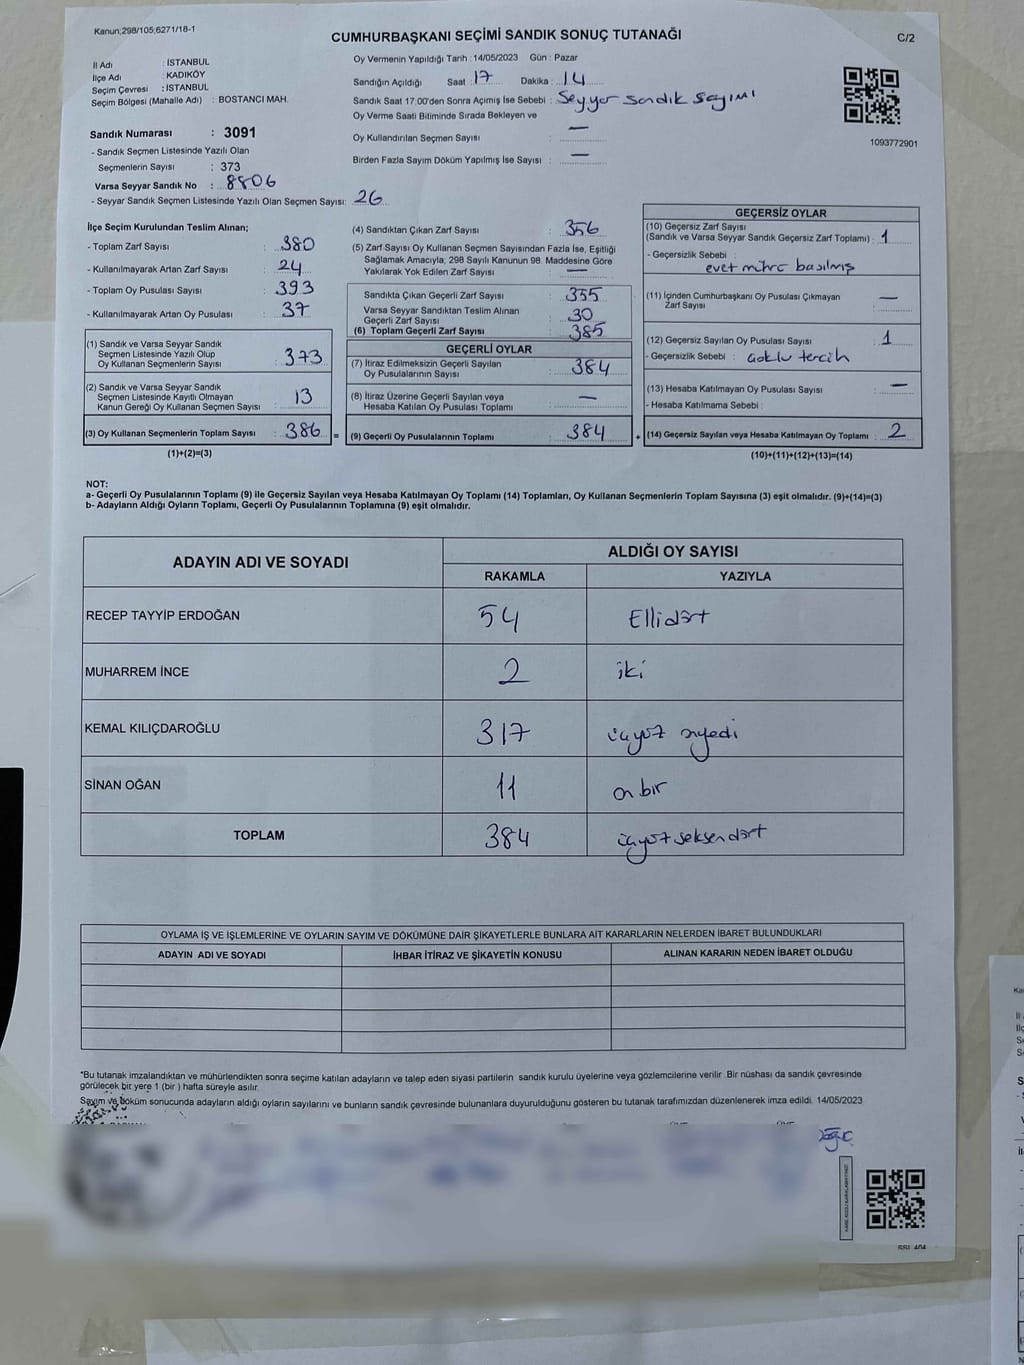 Kanun;298/105;6271/18-1
CUMHURBAŞKANI SEÇİMİ SANDIK SONUÇ TUTANAĞI
C/2
İl Adı : İSTANBUL
İlçe Adı : KADIKÖY
Seçim Çevresi : İSTANBUL
Seçim Bölgesi (Mahalle Adı) : BOSTANCI MAH.
Oy Vermenin Yapıldığı Tarih : 14/05/2023 Gün : Pazar
Sandığın Açıldığı Saat : 17 Dakika : 14
Sandık Saat 17:00'den Sonra Açımış İse Sebebi : Seyyar sandık sayımı
Oy Verme Saati Bitiminde Sırada Bekleyen ve
Oy Kullandırılan Seçmen Sayısı : —
Birden Fazla Sayım Döküm Yapılmış İse Sayısı : —
1093772901
Sandık Numarası : 3091
- Sandık Seçmen Listesinde Yazılı Olan
Seçmenlerin Sayısı : 373
Varsa Seyyar Sandık No : 8506
- Seyyar Sandık Seçmen Listesinde Yazılı Olan Seçmen Sayısı: 26
İlçe Seçim Kurulundan Teslim Alınan;
- Toplam Zarf Sayısı : 380
- Kullanılmayarak Artan Zarf Sayısı : 24
- Toplam Oy Pusulası Sayısı : 393
- Kullanılmayarak Artan Oy Pusulası : 37
(1) Sandık ve Varsa Seyyar Sandık
Seçmen Listesinde Yazılı Olup
Oy Kullanan Seçmenlerin Sayısı : 373
(2) Sandık ve Varsa Seyyar Sandık
Seçmen Listesinde Kayıtlı Olmayan
Kanun Gereği Oy Kullanan Seçmen Sayısı : 13
(3) Oy Kullanan Seçmenlerin Toplam Sayısı : 386 =
(1)+(2)=(3)
(4) Sandıktan Çıkan Zarf Sayısı : 356
(5) Zarf Sayısı Oy Kullanan Seçmen Sayısından Fazla İse, Eşitliği
Sağlamak Amacıyla; 298 Sayılı Kanunun 98. Maddesine Göre
Yakılarak Yok Edilen Zarf Sayısı : —
Sandıkta Çıkan Geçerli Zarf Sayısı : 355
Varsa Seyyar Sandıktan Teslim Alınan
Geçerli Zarf Sayısı : 30
(6) Toplam Geçerli Zarf Sayısı : 385
GEÇERLİ OYLAR
(7) İtiraz Edilmeksizin Geçerli Sayılan
Oy Pusulalarının Sayısı : 384
(8) İtiraz Üzerine Geçerli Sayılan veya
Hesaba Katılan Oy Pusulası Toplamı : —
(9) Geçerli Oy Pusulalarının Toplamı : 384 +
GEÇERSİZ OYLAR
(10) Geçersiz Zarf Sayısı
(Sandık ve Varsa Seyyar Sandık Geçersiz Zarf Toplamı) : 1
- Geçersizlik Sebebi :
evet mührü basılmış
(11) İçinden Cumhurbaşkanı Oy Pusulası Çıkmayan
Zarf Sayısı : —
(12) Geçersiz Sayılan Oy Pusulası Sayısı : 1
- Geçersizlik Sebebi : çoklu tercih
(13) Hesaba Katılmayan Oy Pusulası Sayısı : —
- Hesaba Katılmama Sebebi :
(14) Geçersiz Sayılan veya Hesaba Katılmayan Oy Toplamı : 2
(10)+(11)+(12)+(13)=(14)
NOT:
a- Geçerli Oy Pusulalarının Toplamı (9) ile Geçersiz Sayılan veya Hesaba Katılmayan Oy Toplamı (14) Toplamları, Oy Kullanan Seçmenlerin Toplam Sayısına (3) eşit olmalıdır. (9)+(14)=(3)
b- Adayların Aldığı Oyların Toplamı, Geçerli Oy Pusulalarının Toplamına (9) eşit olmalıdır.
ADAYIN ADI VE SOYADI
ALDIĞI OY SAYISI
RAKAMLA YAZIYLA
RECEP TAYYİP ERDOĞAN 54 Ellidört
MUHARREM İNCE 2 iki
KEMAL KILIÇDAROĞLU 317 üçyüz onyedi
SİNAN OĞAN 11 on bir
TOPLAM 384 üçyüzseksendört
OYLAMA İŞ VE İŞLEMLERİNE VE OYLARIN SAYIM VE DÖKÜMÜNE DAİR ŞİKAYETLERLE BUNLARA AİT KARARLARIN NELERDEN İBARET BULUNDUKLARI
ADAYIN ADI VE SOYADI İHBAR İTİRAZ VE ŞİKAYETİN KONUSU ALINAN KARARIN NEDEN İBARET OLDUĞU
*Bu tutanak imzalandıktan ve mühürlendikten sonra seçime katılan adayların ve talep eden siyasi partilerin sandık kurulu üyelerine veya gözlemcilerine verilir. Bir nüshası da sandık çevresinde
görülecek bir yere 1 (bir ) hafta süreyle asılır.
Sayım ve Döküm sonucunda adayların aldığı oyların sayılarını ve bunların sandık çevresinde bulunanlara duyurulduğunu gösteren bu tutanak tarafımızdan düzenlenerek imza edildi. 14/05/2023